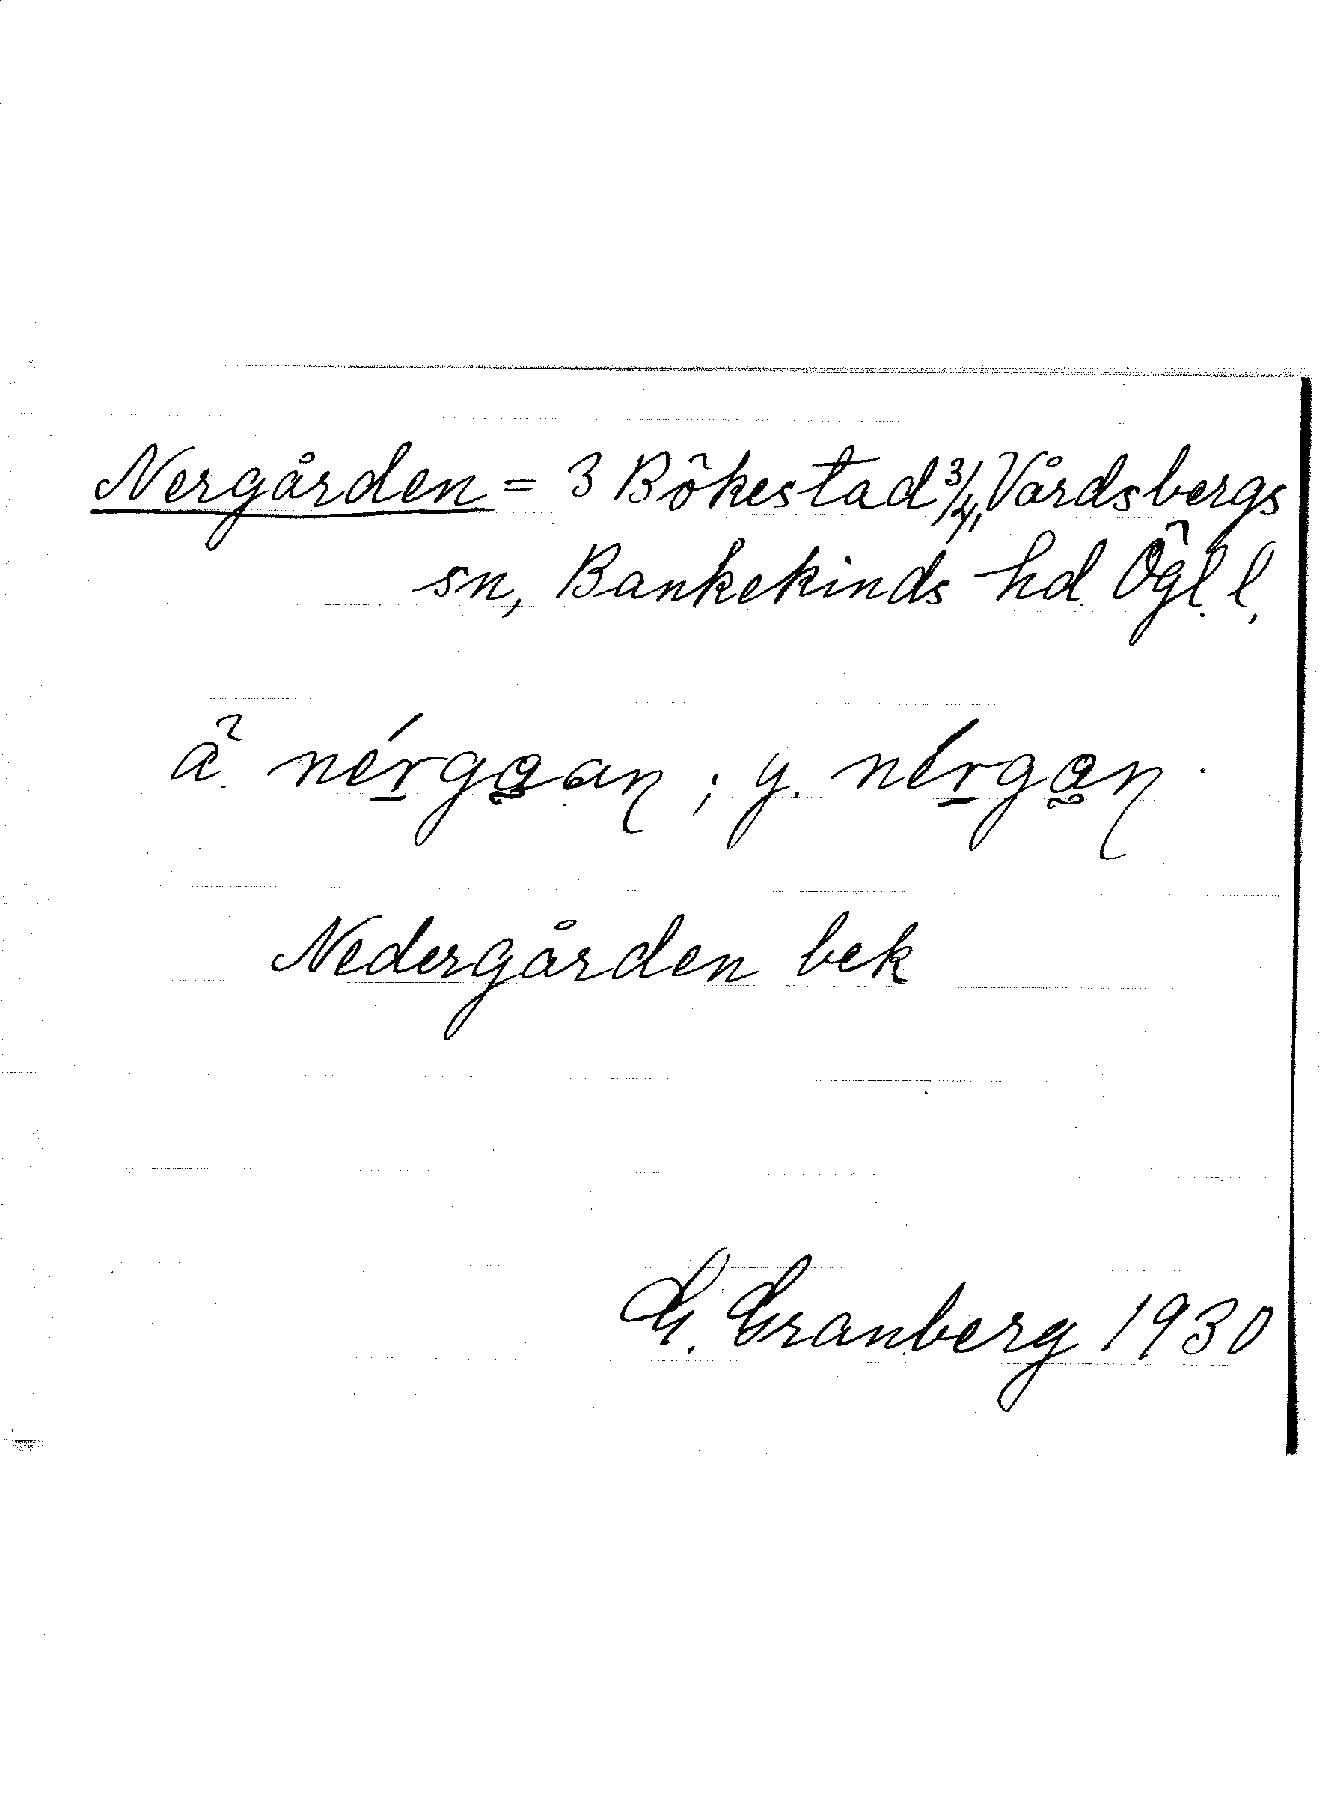 Nergården = 3 Bökestad 3/4, Vårdsbergs
sn, Bankekinds hd. Ögl. l.
ä. nérgaan ; y. nérgan.
Nedergården bek
G. Granberg 1930